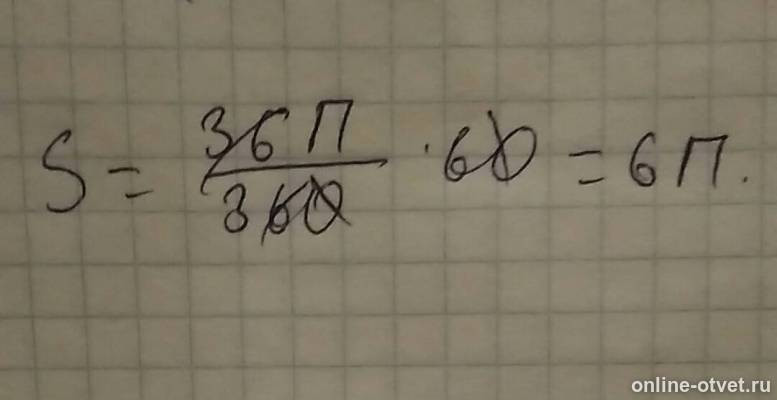 S = 36П/360 · 60 = 6П.
online-otvet.ru